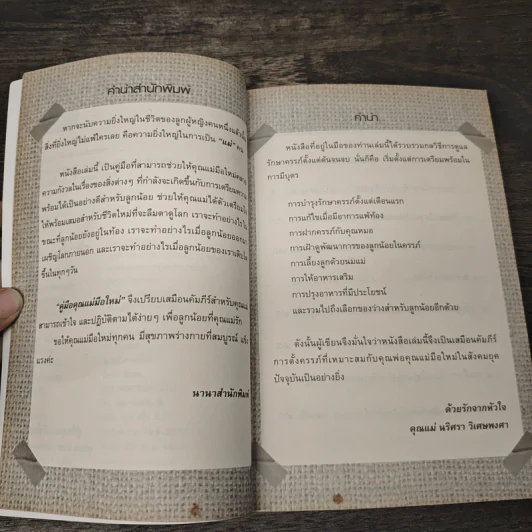 คำนำสำนักพิมพ์
หากจะนับความยิ่งใหญ่ในชีวิตของลูกผู้หญิงคนหนึ่งแล้วนั้น
สิ่งที่ยิ่งใหญ่ไม่แพ้ใครเลย คือความยิ่งใหญ่ในการเป็น "แม่" คน
หนังสือเล่มนี้ เป็นคู่มือที่สามารถช่วยให้คุณแม่มือใหม่คลาย
ความกังวลในเรื่องของสิ่งต่างๆ ที่กำลังจะเกิดขึ้นกับการเตรียมความ
พร้อมได้เป็นอย่างดีสำหรับลูกน้อย ช่วยให้คุณแม่ได้ตัวเตรียมใจ
ให้พร้อมเสมอสำหรับชีวิตใหม่ที่จะลืมตาดูโลก เราจะทำอย่างไรใน
ขณะที่ลูกน้อยยังอยู่ในท้อง เราจะทำอย่างไรเมื่อลูกน้อยออกมา
เผชิญโลกภายนอก และเราจะทำอย่างไรเมื่อลูกน้อยของเราเติบโต
ขึ้นในทุกๆวัน
"คู่มือคุณแม่มือใหม่" จึงเปรียบเสมือนคัมภีร์สำหรับคุณแม่
สามารถเข้าใจ และปฏิบัติตามได้ง่ายๆ เพื่อลูกน้อยที่คุณแม่รัก
ขอให้คุณแม่มือใหม่ทุกคน มีสุขภาพร่างกายที่สมบูรณ์ แข็ง
แรงค่ะ
นานาสำนักพิมพ์
คำนำ
หนังสือที่อยู่ในมือของท่านเล่มนี้ได้รวบรวมกลวิธีการดูแล
รักษาครรภ์ตั้งแต่ต้นจนจบ นั่นก็คือ เริ่มตั้งแต่การเตรียมพร้อมใน
การมีบุตร
การบำรุงรักษาครรภ์ตั้งแต่เดือนแรก
การแก้ไขเมื่อมีอาการแพ้ท้อง
การฝากครรภ์กับคุณหมอ
การเฝ้าดูพัฒนาการของลูกน้อยในครรภ์
การเลี้ยงลูกด้วยนมแม่
การให้อาหารเสริม
การปรุงอาหารที่มีประโยชน์
และรวมไปถึงเลือกของว่างสำหรับลูกน้อยอีกด้วย
ดังนั้นผู้เขียนจึงมั่นใจว่าหนังสือเล่มนี้จึงเป็นเสมือนคัมภีร์
การตั้งครรภ์ที่เหมาะสมกับคุณพ่อคุณแม่มือใหม่ในสังคมยุค
ปัจจุบันเป็นอย่างยิ่ง
ด้วยรักจากหัวใจ
คุณแม่ นริศรา วิเศษพงศา